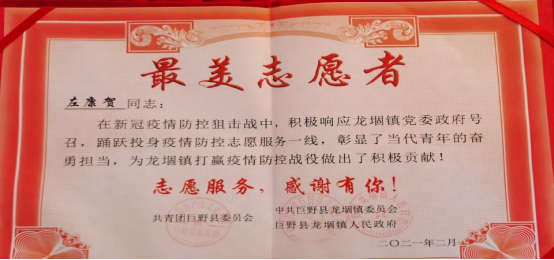 最美志愿者
左康贺 同志：
在新冠疫情防控狙击战中，积极响应龙堌镇党委政府号
召，踊跃投身疫情防控志愿服务一线，彰显了当代青年的奋
勇担当，为龙堌镇打赢疫情防控战役做出了积极贡献！
志愿服务，感谢有你！
共青团巨野县委员会 中共巨野县龙堌镇委员会
巨野县龙堌镇人民政府
二〇二一年二月